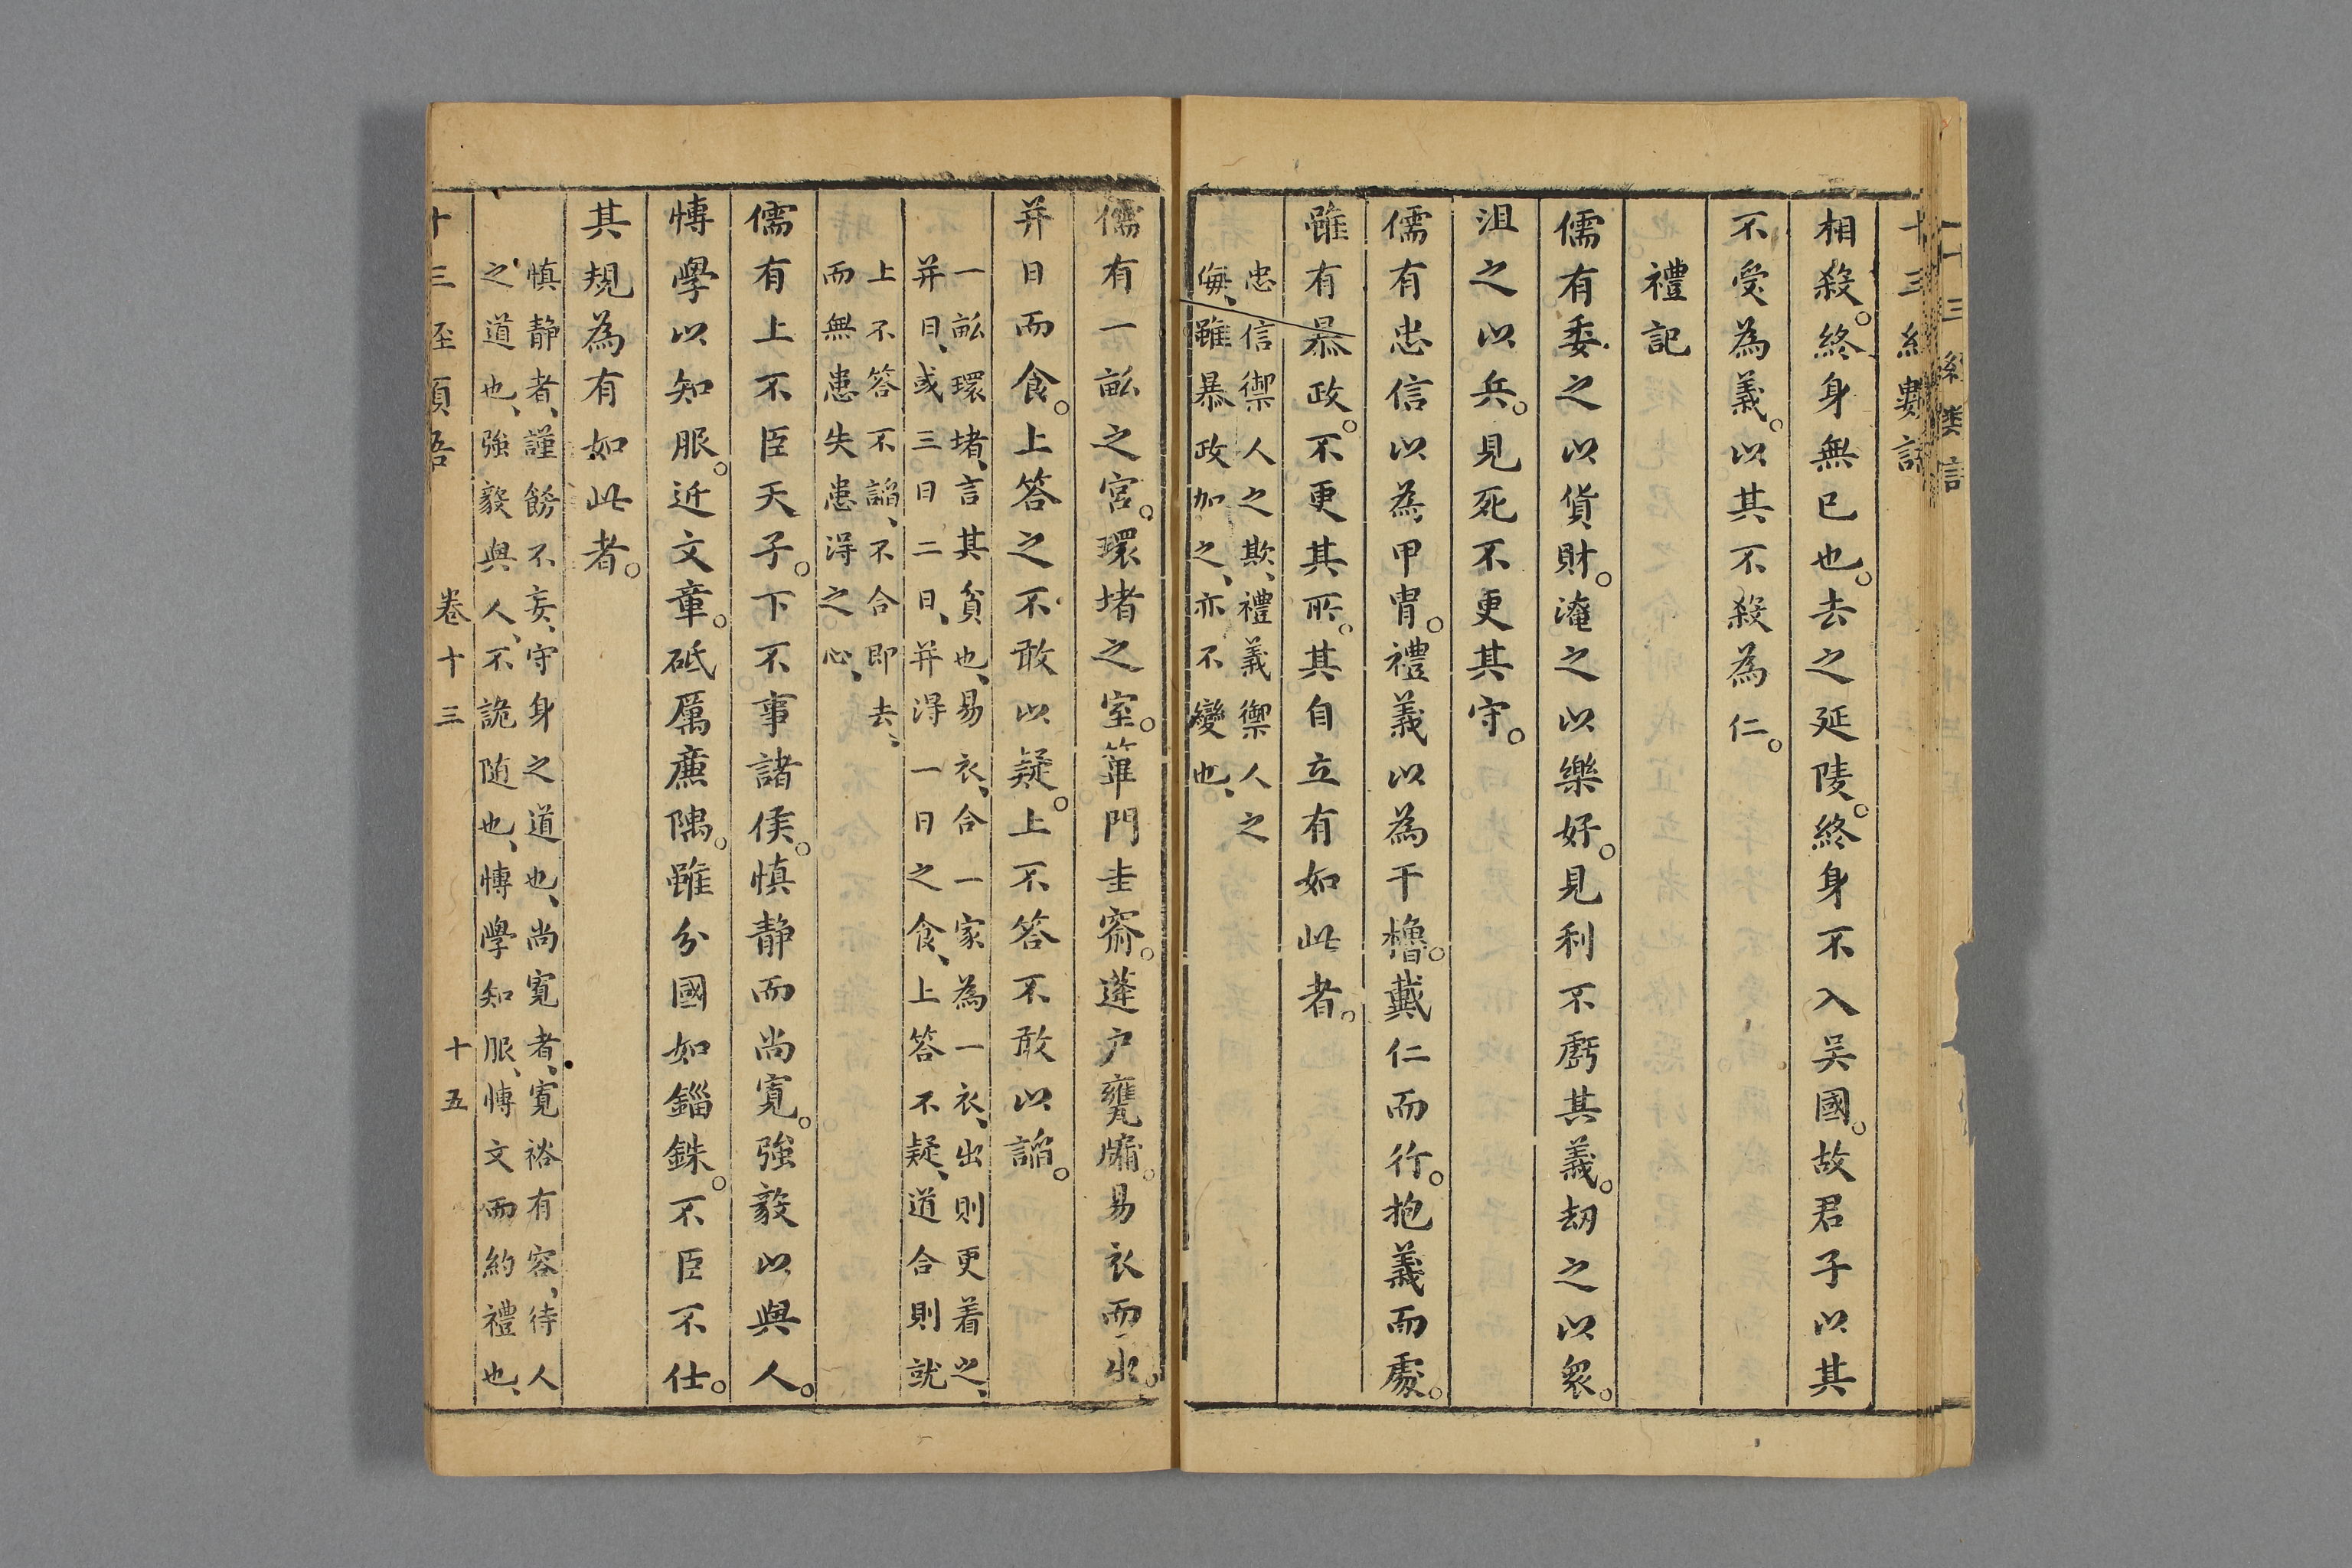 十三經類語
相殺。終身無已也。去之延陵。終身不入吳國。故君子以其
不受為義。以其不殺為仁。
禮記
儒有委之以貨財。淹之以樂好。見利不虧其義。劫之以衆。
沮之以兵。見死不更其守。
儒有忠信以為甲冑。禮義以為干櫓。戴仁而行。抱義而處。
雖有暴政。不更其所。其自立有如此者。
忠信禦人之欺、禮義禦人之
侮、雖暴政加之、亦不變也、
儒有一畝之宮。環堵之室。篳門圭窬。蓬户甕牖。易衣而出。
并日而食。上答之不敢以疑。上不答不敢以諂。
一畝環堵、言其貧也、易衣、合一家為一衣、出則更着之、
并日、或三日二日、并淂一日之食、上答不疑、道合則就
上不答不諂、不合即去、
而無患失患淂之心、
儒有上不臣天子。下不事諸侯。慎静而尚寬。強毅以與人。
博學以知服。近文章。砥厲廉隅。雖分國如錙銖。不臣不仕。
其規為有如此者。
慎静者、謹飭不妄、守身之道也、尚寬者、寬裕有容、待人
之道也、強毅與人、不詭随也、博學知服、博文而約禮也、
十三經類語 卷十三 十五